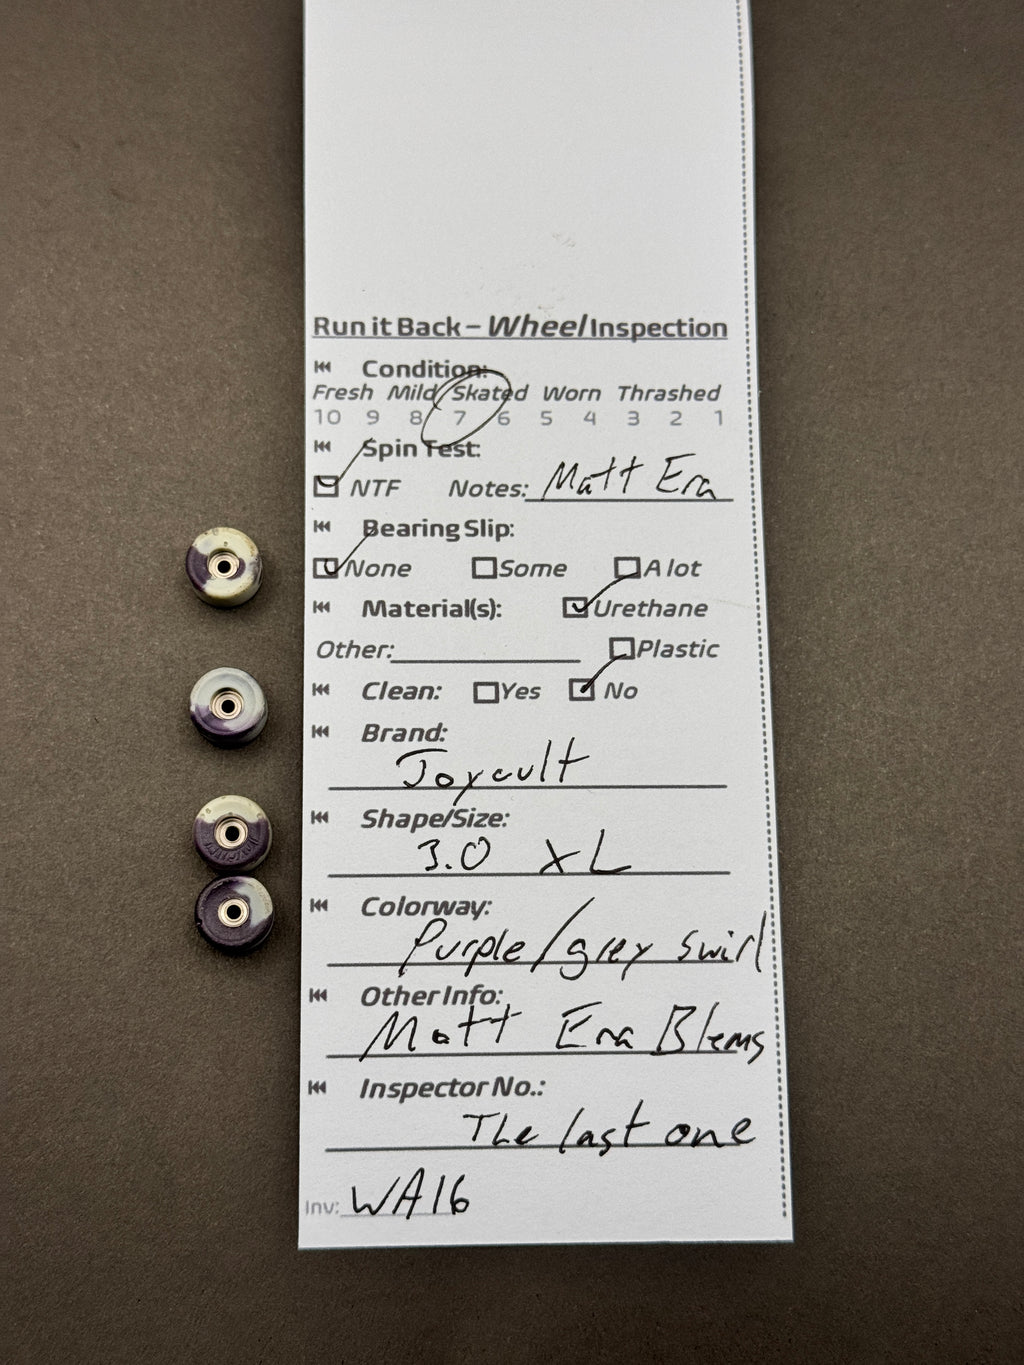 Run it Back – Wheel Inspection
Condition:
Fresh Mild Skated Worn Thrashed
10 9 8 7 6 5 4 3 2 1
Spin Test:
NTF Notes: Matt Era
Bearing Slip:
None Some A lot
Material(s): Urethane
Other: Plastic
Clean: Yes No
Brand:
Joycult
Shape/Size:
3.0 XL
Colorway:
Purple/grey swirl
Other Info:
Matt Era Blems
Inspector No.:
The last one
Inv: WA16